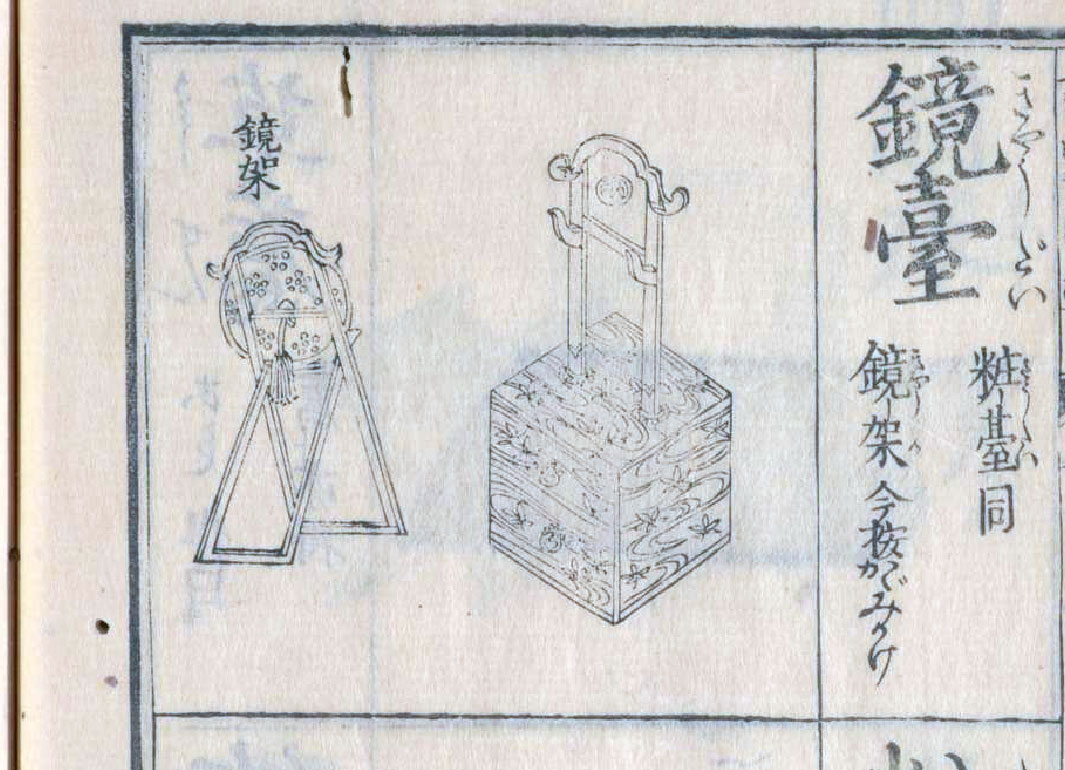 鏡臺
きやうだい
粧臺同
さうたい
鏡架 今按かゞみかけ
きやうか
鏡架